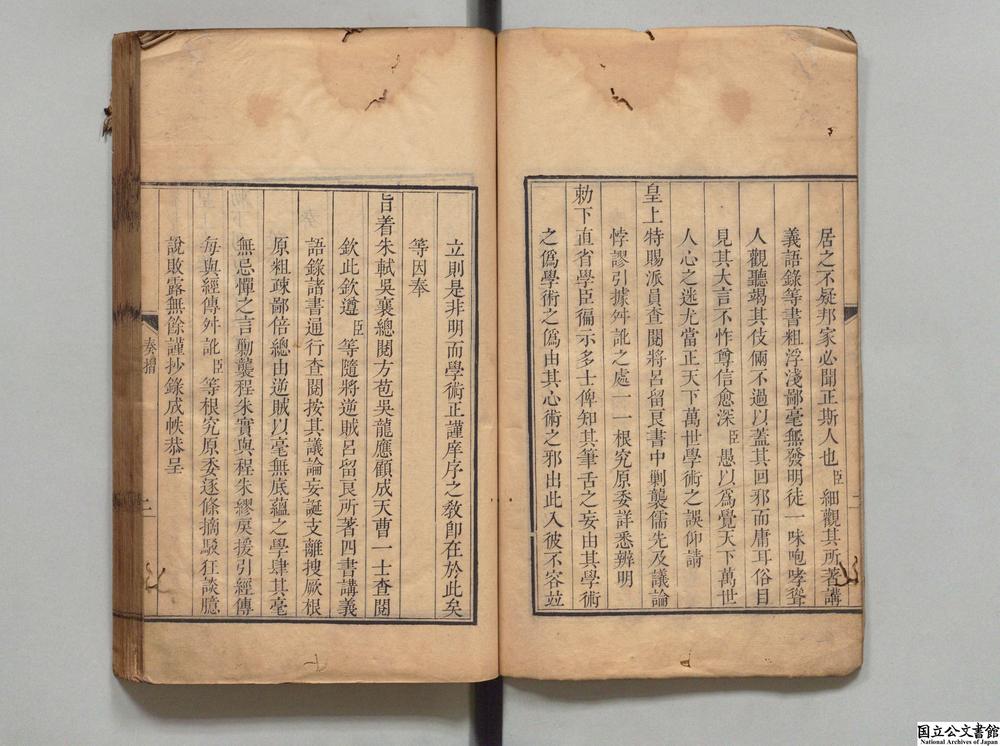 居之不疑邦家必聞正斯人也臣細觀其所著講
義語錄等書粗浮淺鄙毫無發明徒一味咆哮聳
人觀聽竭其伎倆不過以蓋其回邪而庸耳俗目
見其大言不怍尊信愈深臣愚以爲覺天下萬世
人心之迷尤當正天下萬世學術之誤仰請
皇上特賜派員查閱將呂留良書中剿襲儒先及議論
悖謬引據舛訛之處一一根究原委詳悉辨明
勅下直省學臣徧示多士俾知其筆舌之妄由其學術
之僞學術之僞由其心術之邪出此入彼不容竝
立則是非明而學術正謹庠序之敎卽在於此矣
等因奉
旨着朱軾吳襄總閱方苞吳龍應顧成天曹一士查閱
欽此欽遵臣等隨將逆賊呂留良所著四書講義
語錄諸書通行查閱按其議論妄誕支離搜厥根
原粗疎鄙倍總由逆賊以毫無底蘊之學肆其毫
無忌憚之言勦襲程朱實與程朱繆戾援引經傳
每與經傳舛訛臣等根究原委逐條摘駁狂談臆
說敗露無餘謹抄錄成帙恭呈
奏摺
二
国立公文書館
National Archives of Japan